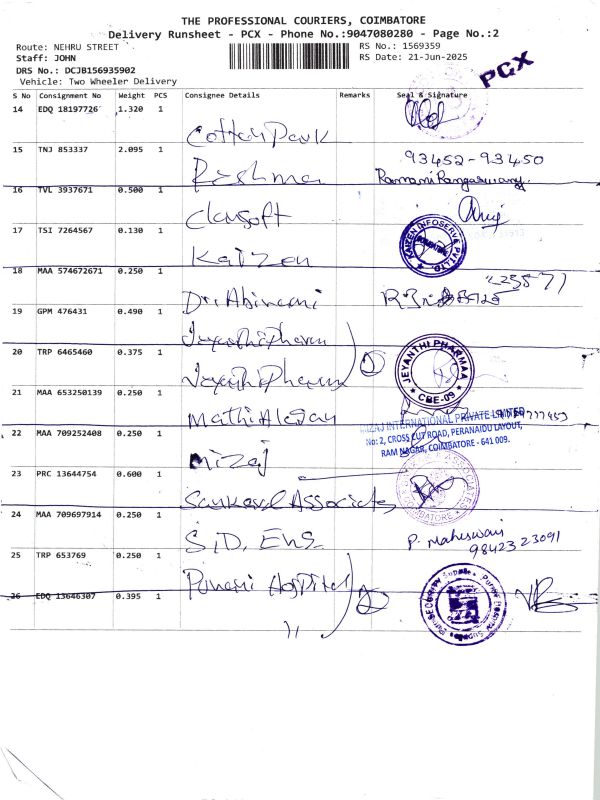 THE PROFESSIONAL COURIERS, COIMBATORE
Delivery Runsheet - PCX - Phone No.:9047080280 - Page No.:2
Route: NEHRU STREET
Staff: JOHN
DRS No.: DCJB156935902
Vehicle: Two Wheeler Delivery
RS No.: 1569359
RS Date: 21-Jun-2025
PCX
S No Consignment No Weight PCS Consignee Details Remarks Seal & Signature
14 EDQ 18197726 1.320 1
Cotton Park
15 TNJ 853337 2.095 1
93452-93450
Reshma
Ramani Rangaswamy
16 TVL 3937671 0.500 1
Clansoft
17 TSI 7264567 0.130 1
Kaizen
KAIZEN INFOSERVE PVT LTD.
18 MAA 574672671 0.250 1
Dr. Abirami
19 GPM 476431 0.490 1
Jeyanthi Pharm
20 TRP 6465460 0.375 1
Jeyanthi Pharm
2
JEYANTHI PHARMAA
CBE-09
21 MAA 653250139 0.250 1
Mathi Alagay
22 MAA 709252408 0.250 1
Mizaj
MIZAJ INTERNATIONAL PRIVATE LIMITED
No: 2, CROSS CUT ROAD, PERANAIDU LAYOUT,
RAM NAGAR, COIMBATORE - 641 009.
23 PRC 13644754 0.600 1
Sankaral Associates
24 MAA 709697914 0.250 1
S.D. Ens
P. Maheswari
9842323091
25 TRP 653769 0.250 1
Punani Hospital
2
26 EDQ 13646307 0.395 1
"